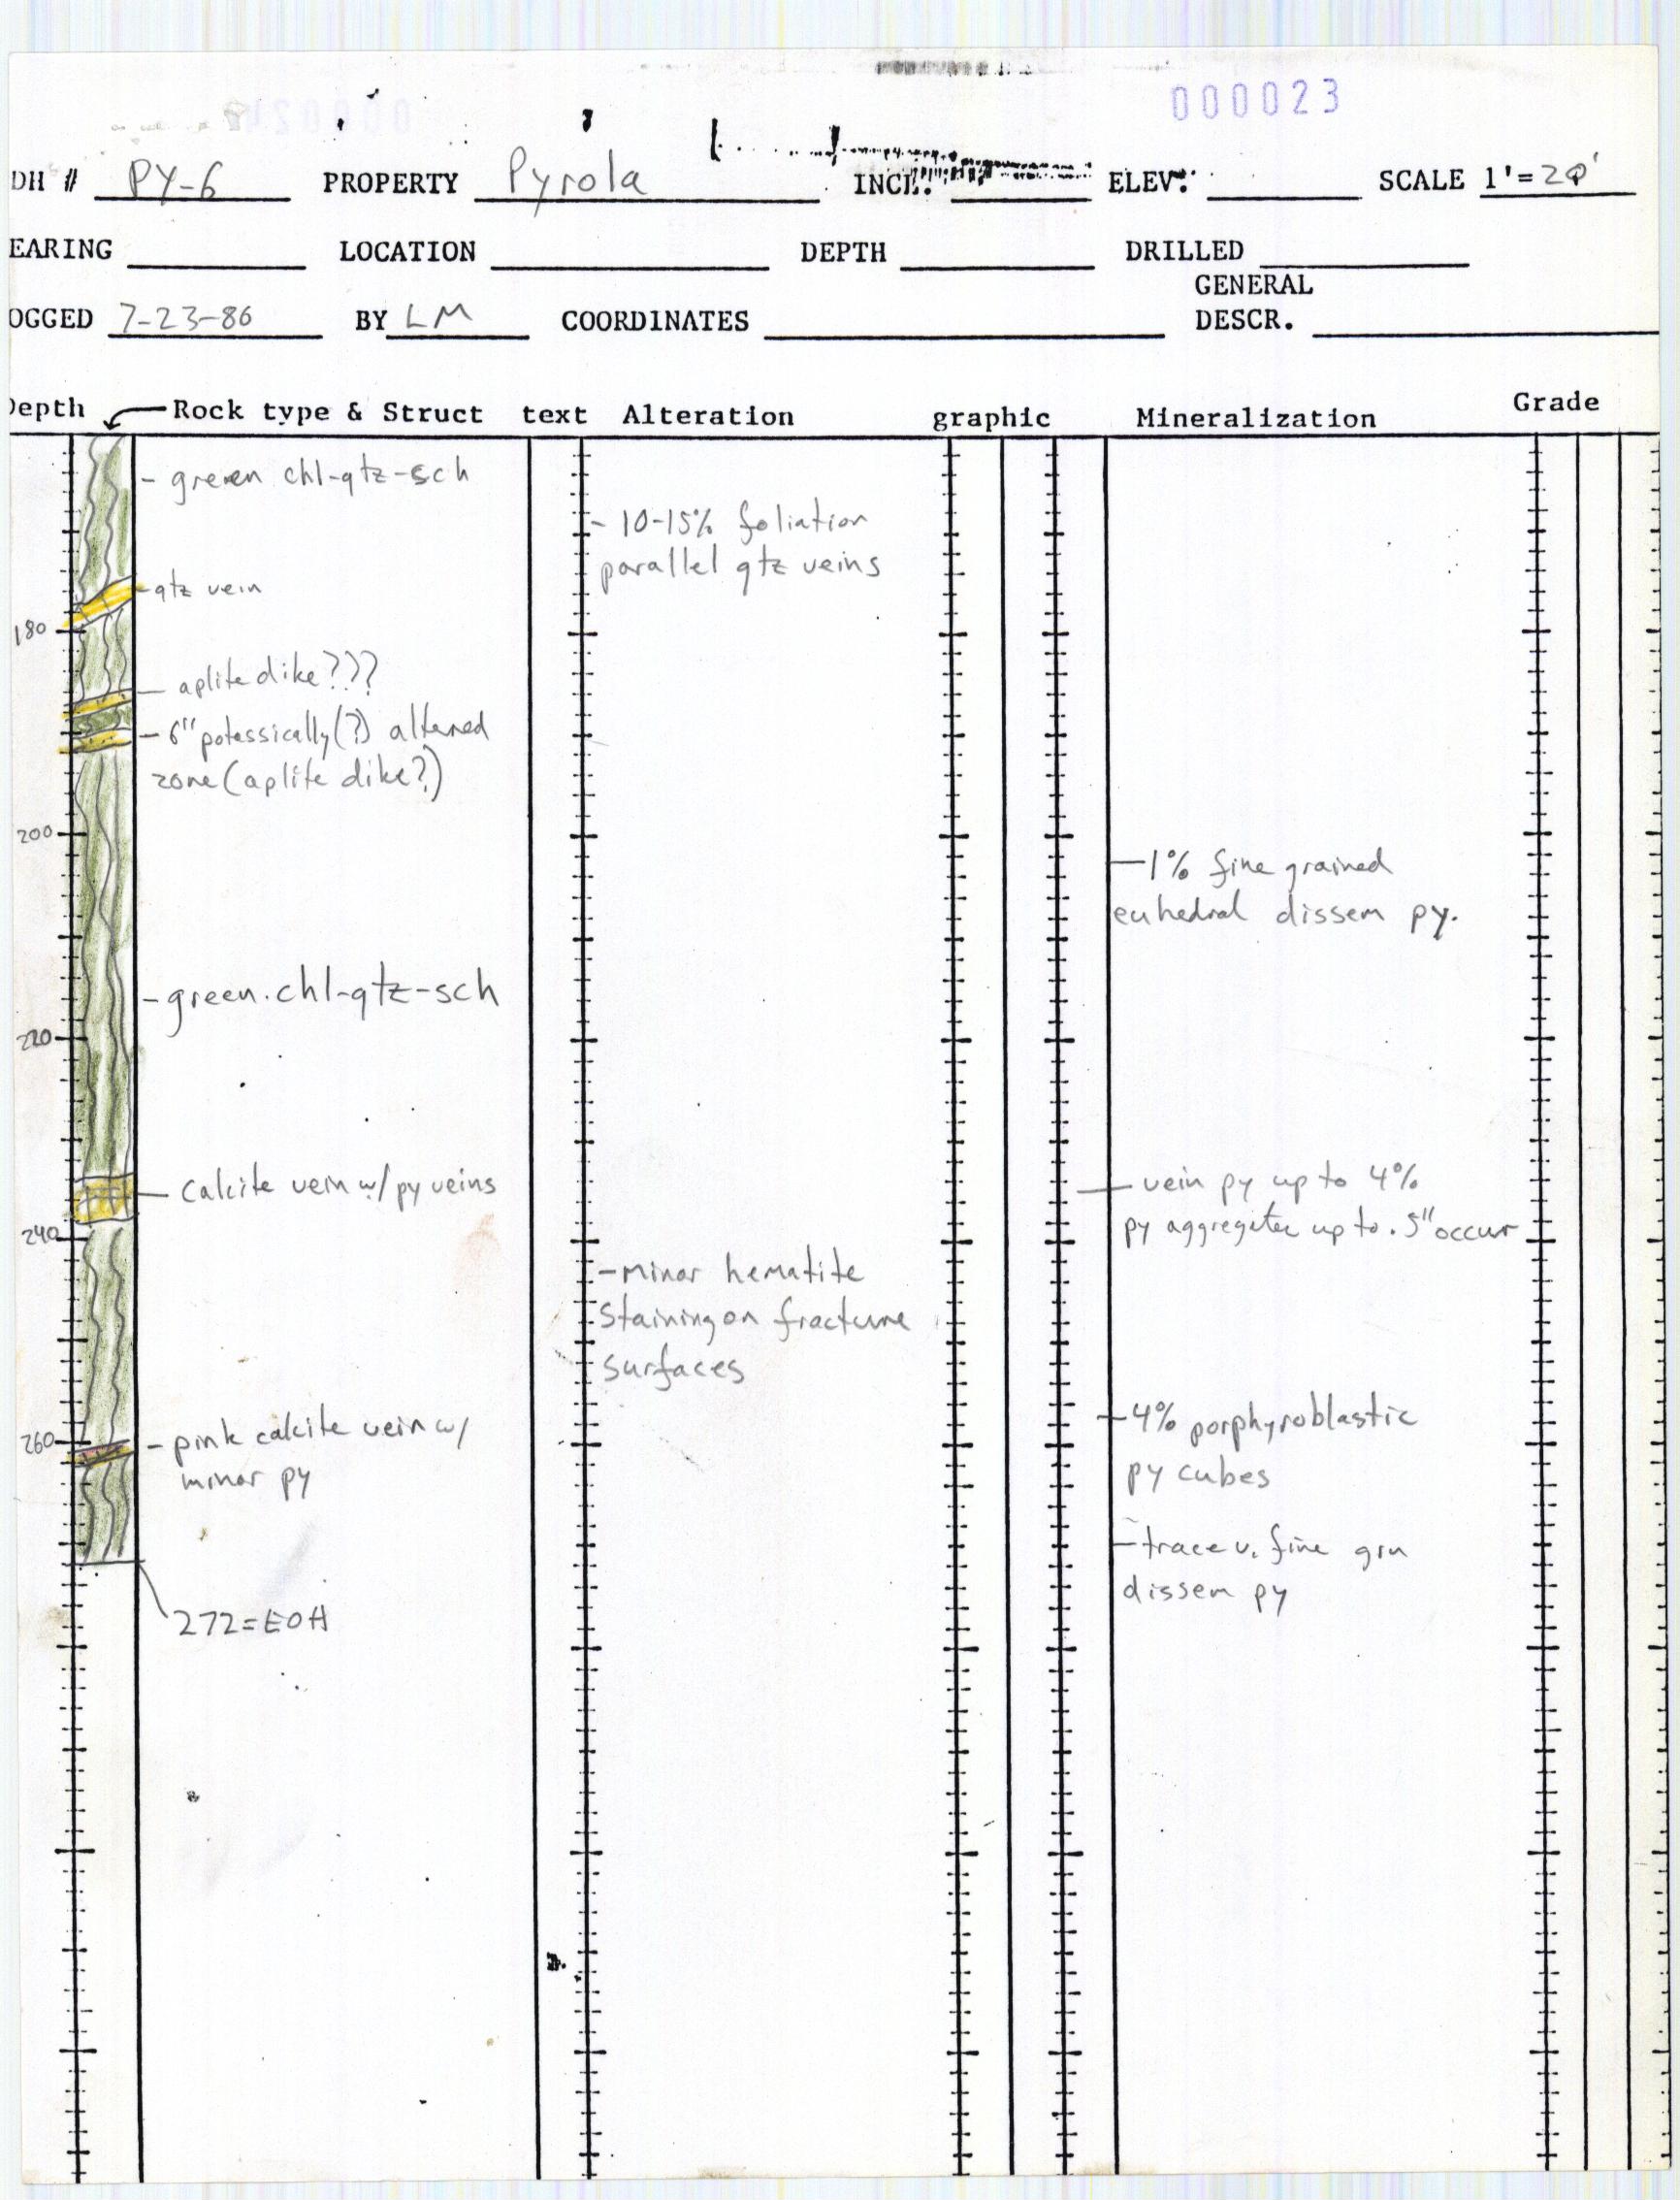 000023
DH # PY-6 PROPERTY Pyrola INCL. ELEV. SCALE 1'=20'
EARING LOCATION DEPTH DRILLED
GENERAL
OGGED 7-23-86 BY LM COORDINATES DESCR.
Depth Rock type & Struct text Alteration graphic Mineralization Grade
- green chl-qtz-sch
- 10-15% foliation
parallel qtz veins
- qtz vein
180
- aplite dike???
- 6" potassically(?) altered
zone (aplite dike?)
200
- 1% fine grained
euhedral dissem py.
- green chl-qtz-sch
220
- Calcite vein w/ py veins
- vein py up to 4%
py aggregates up to .5" occur
240
- minor hematite
staining on fracture
surfaces
- 4% porphyroblastic
py cubes
260
- pink calcite vein w/
minor py
- trace v. fine grn
dissem py
272=EOH